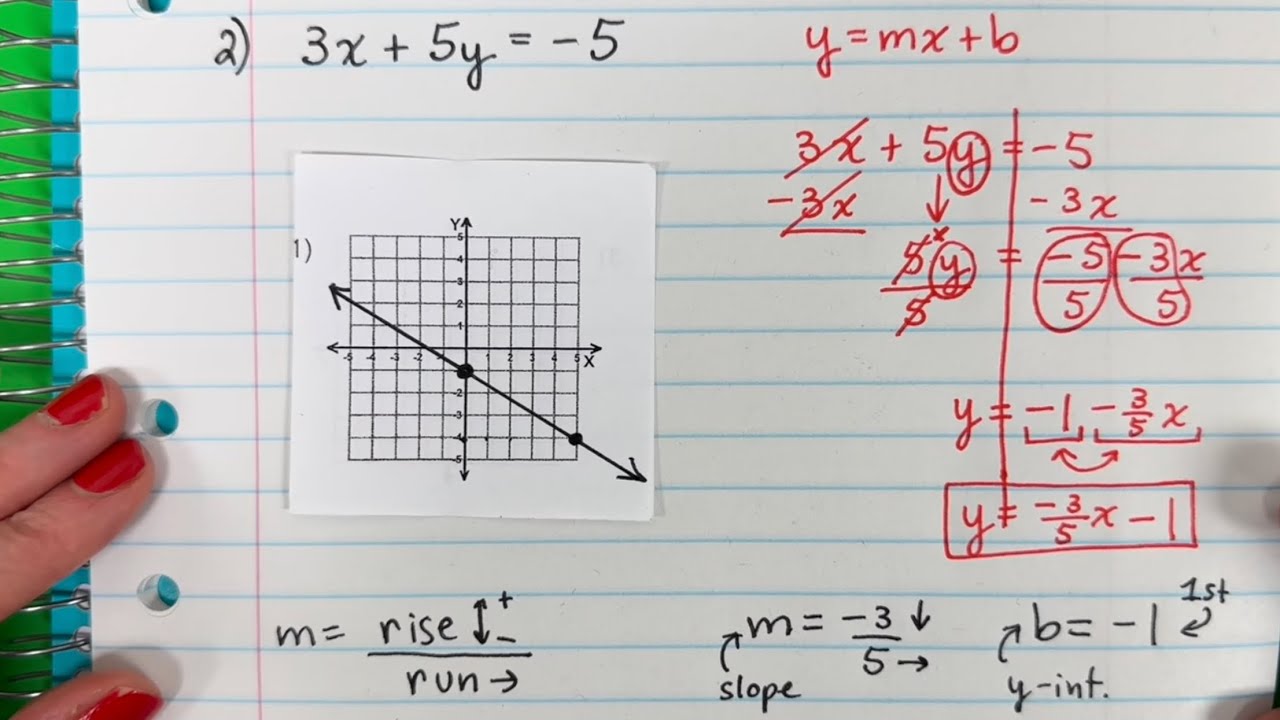 2) 3x + 5y = -5
y = mx + b
3x + 5y = -5
-3x -3x
5y = -5 -3x
5 5 5
y = -1 -3/5 x
y = -3/5 x - 1
1)
Y
5
4
3
2
1
-5 -4 -3 -2 1 2 3 4 5 X
-2
-3
-4
-5
m = rise + -
run
m = -3
5
slope
b = -1 1st
y-int.